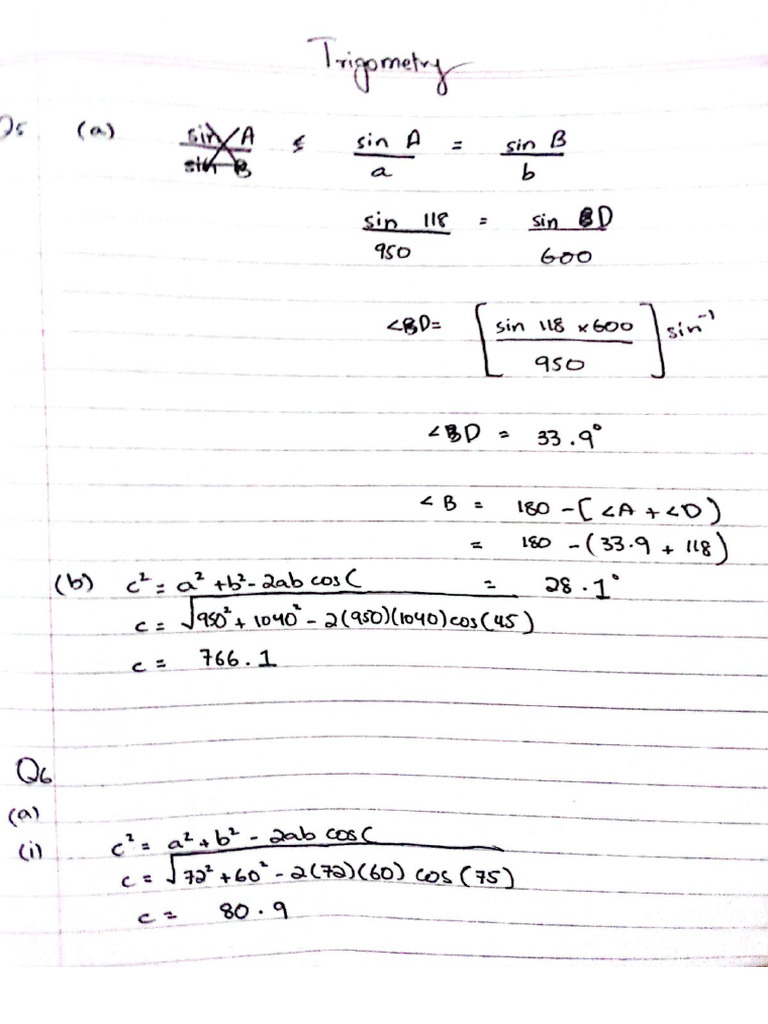 Trigometry
Q5 (a) sin A / sin B  sin A / a = sin B / b
sin 118 / 950 = sin D / 600
∠D = [sin 118 × 600 / 950] sin⁻¹
∠D = 33.9°
∠B = 180 - [∠A + ∠D)
= 180 - (33.9 + 118)
= 28.1°
(b) c² = a² + b² - 2ab cos C
c = √950² + 1040² - 2(950)(1040) cos(45)
c = 766.1
Q6
(a)
(i) c² = a² + b² - 2ab cos C
c = √72² + 60² - 2(72)(60) cos (75)
c = 80.9